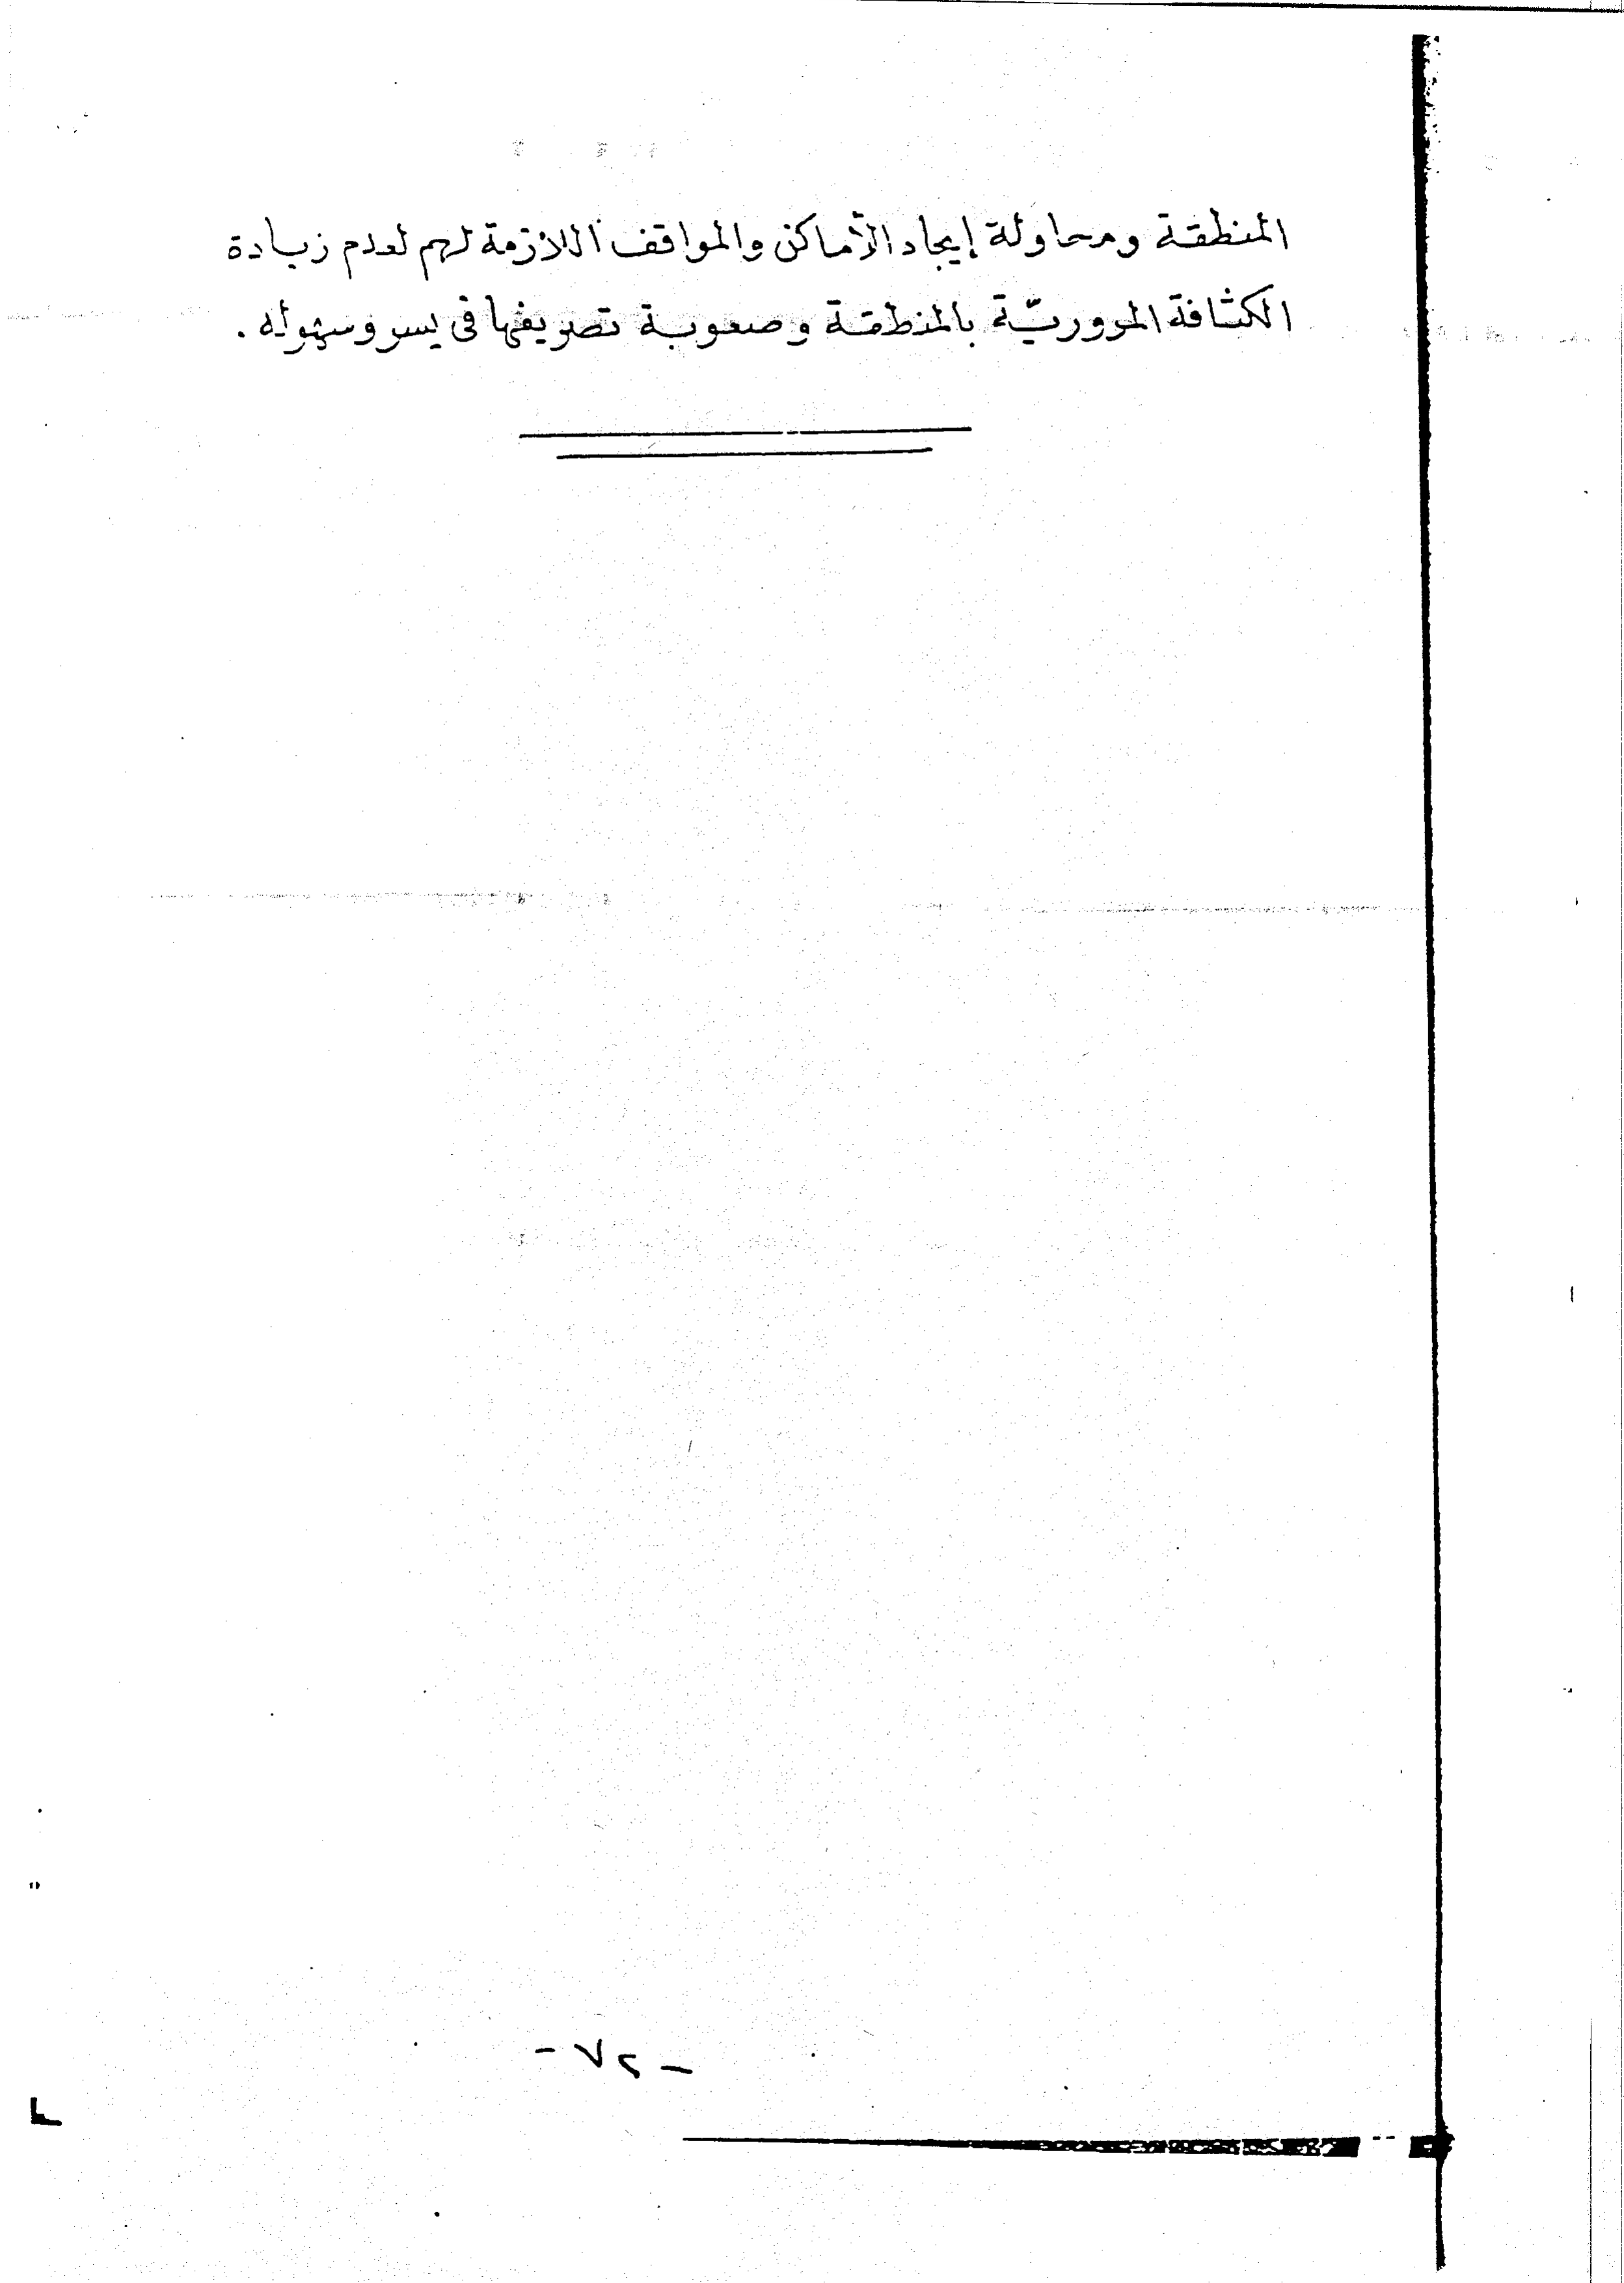 المنطقة ومحاولة إيجاد الأماكن والمواقف اللازمة لهم لعدم زيادة
الكثافة المروريّة بالمنطقة وصعوبة تصريفها فى يسر وسهوله .
- ٧٢ -